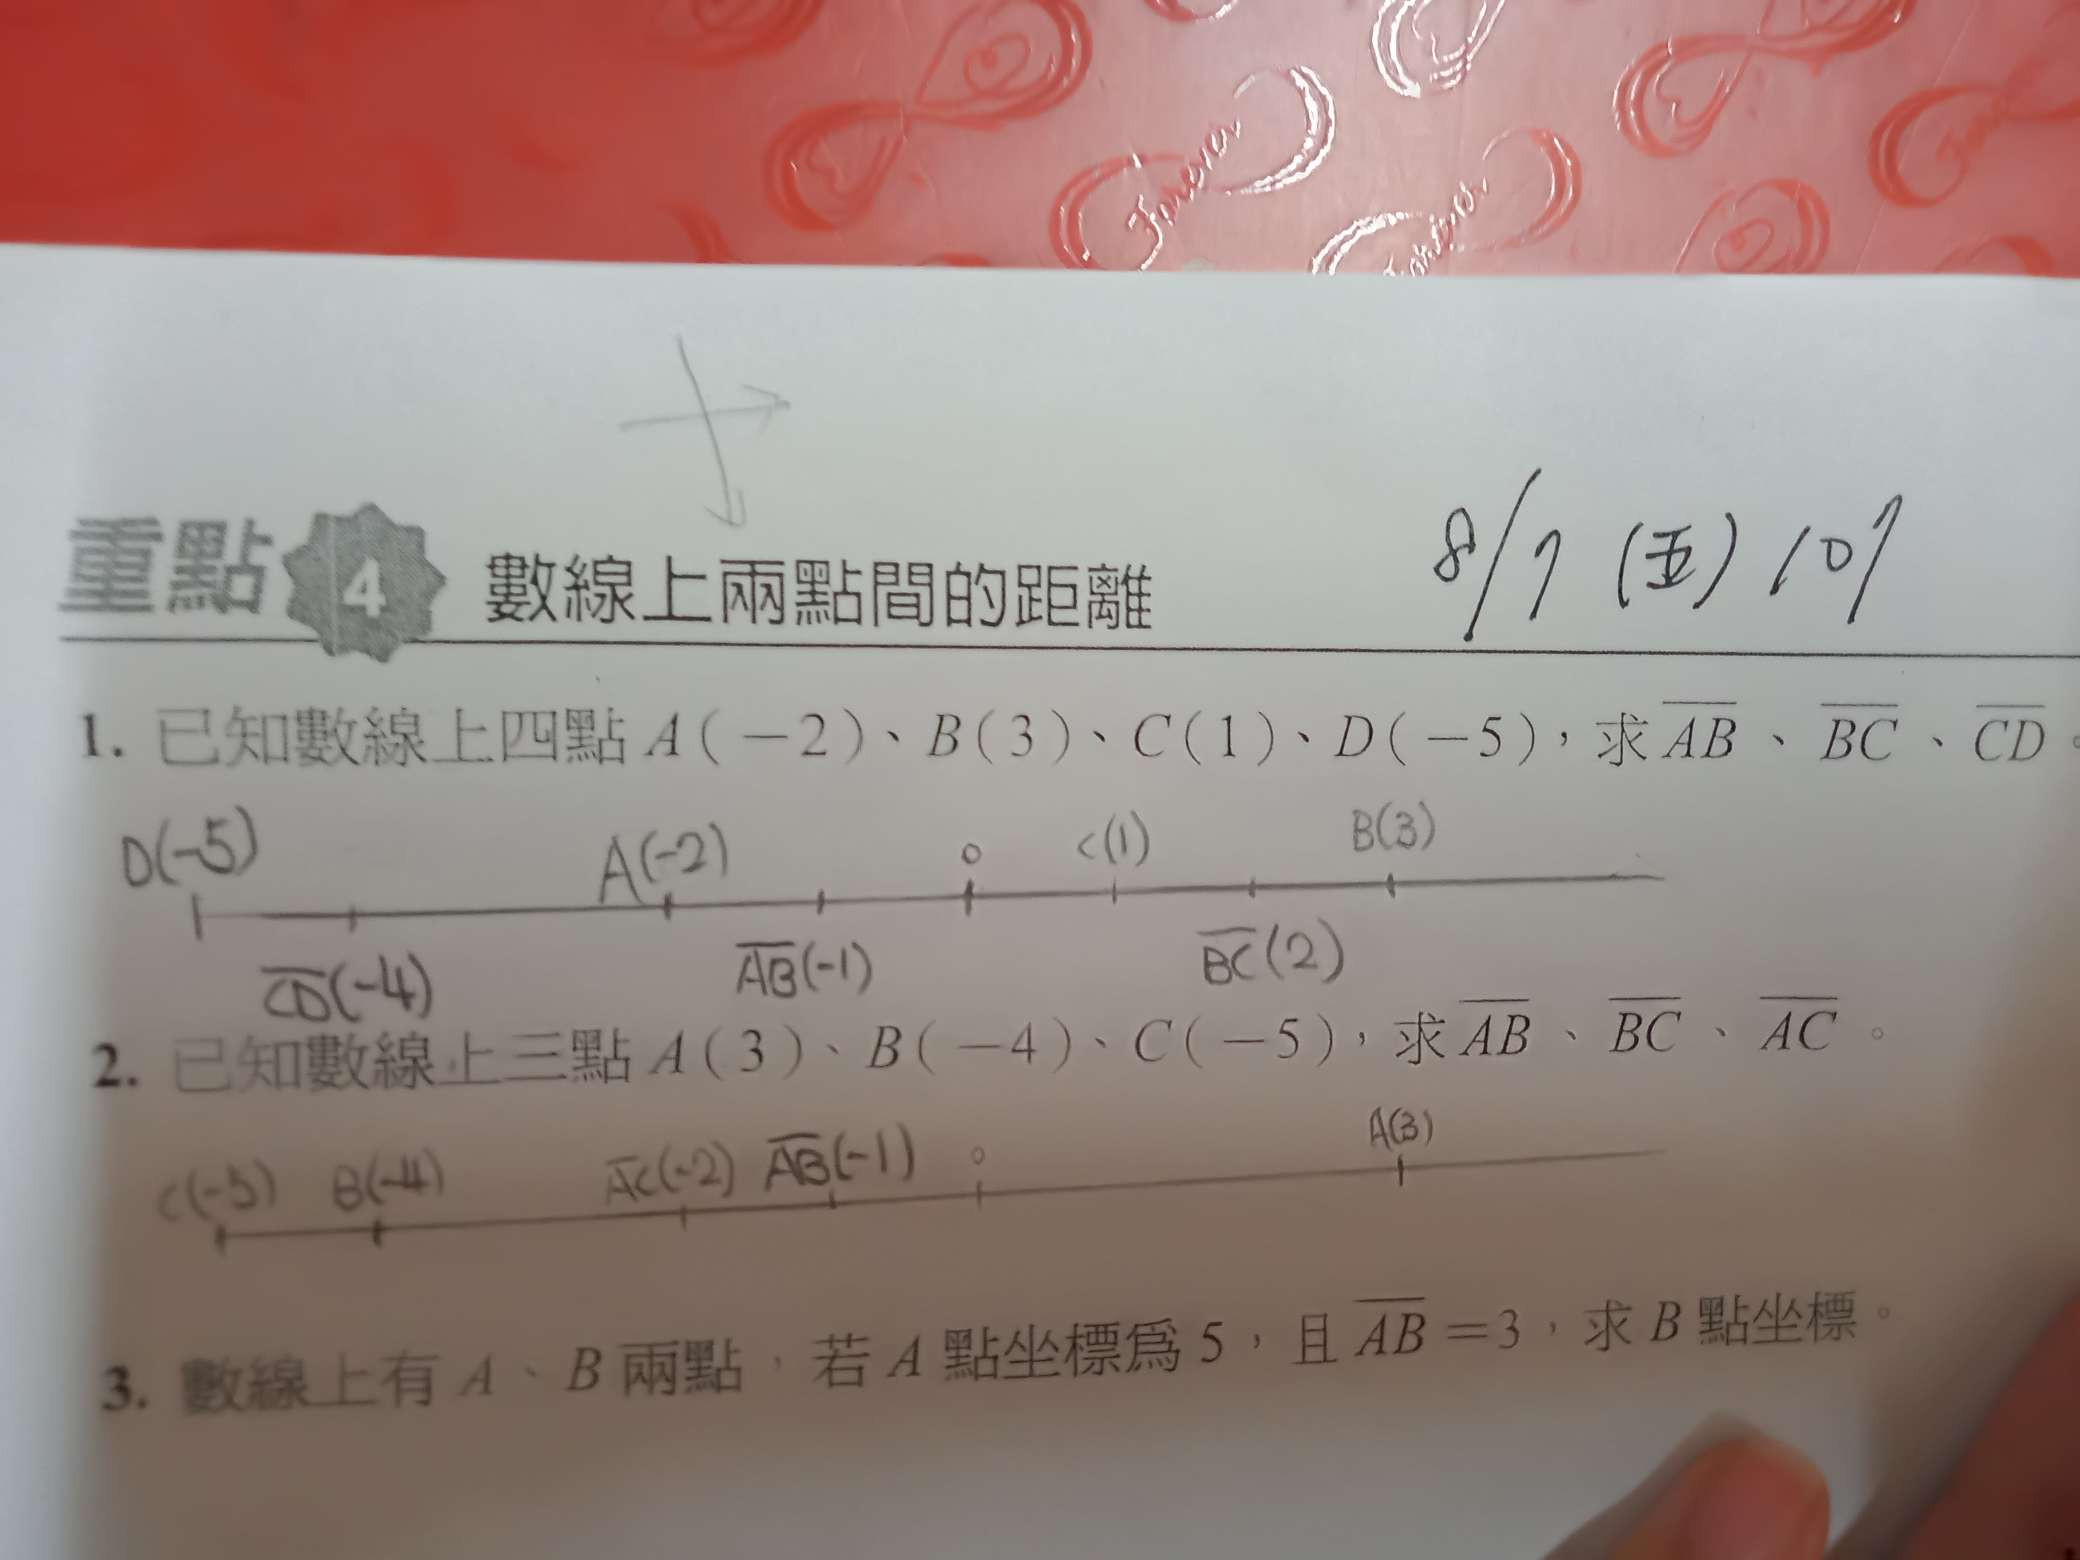 Forever
Forever
8/7 (五) 10/
重點 4 數線上兩點間的距離
1. 已知數線上四點 A(-2)、B(3)、C(1)、D(-5),求 \overline{AB}、\overline{BC}、\overline{CD}。
D(-5) A(-2) 0 C(1) B(3)
\overline{CD}(-4) \overline{AB}(-1) \overline{BC}(2)
2. 已知數線上三點 A(3)、B(-4)、C(-5),求 \overline{AB}、\overline{BC}、\overline{AC}。
C(-5) B(-4) \overline{AC}(-2) \overline{AB}(-1) 0 A(3)
3. 數線上有 A、B 兩點,若 A 點坐標為 5,且 \overline{AB}=3,求 B 點坐標。